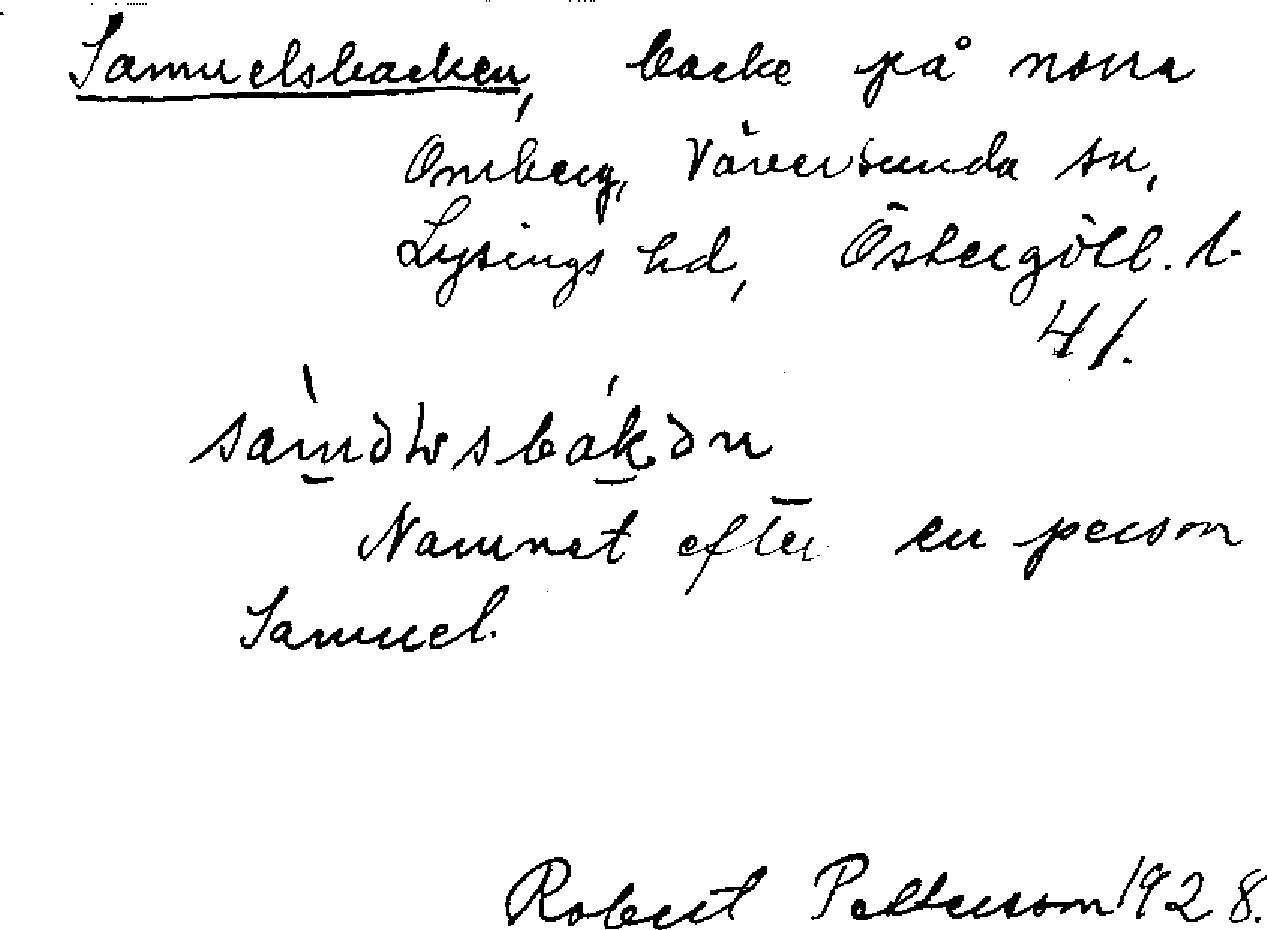 Samuelsbacken, backe på norra
Omberg, Väversunda sn,
Lysings hd, Östergötl. l.
41.
Namnet efter en person
Samuel.
Robert Petterson 1928.